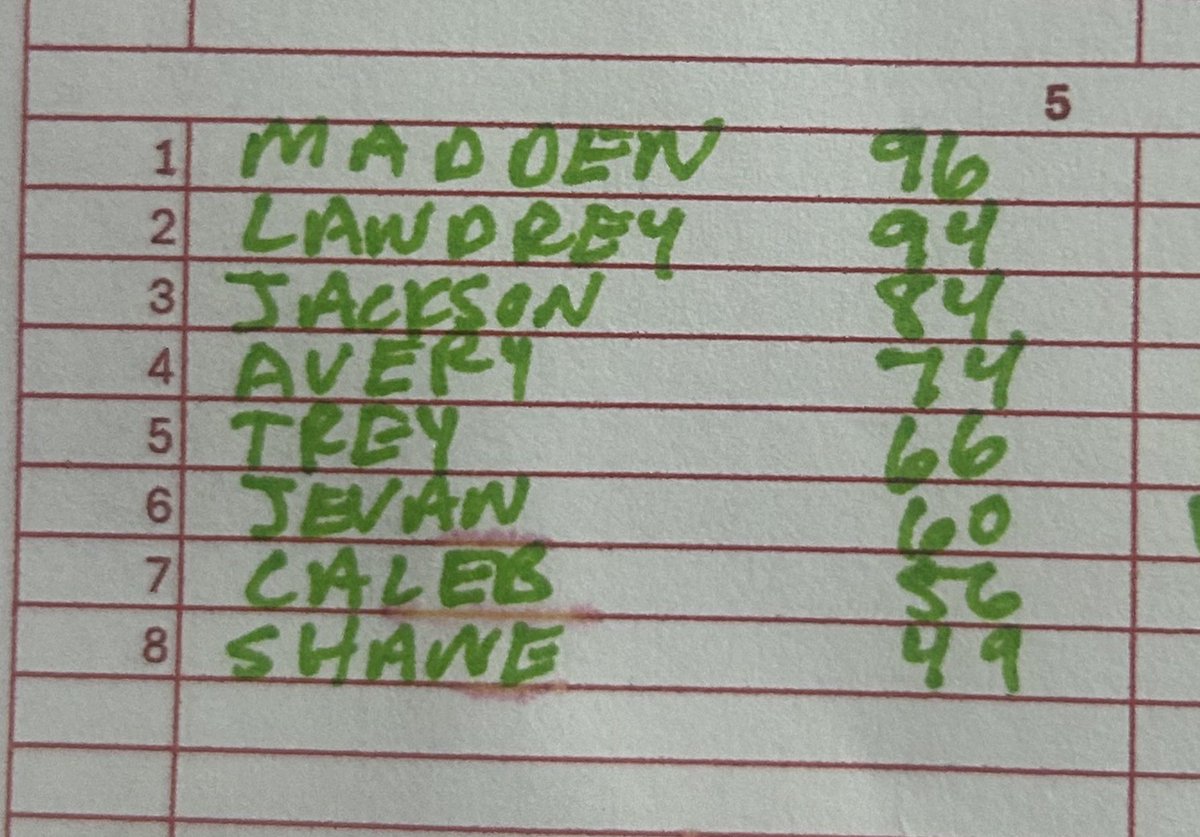 5
1 MADDEN 96
2 LANDREY 94
3 JACKSON 84
4 AVERY 74
5 TREY 66
6 JEVAN 60
7 CALEB 56
8 SHANE 49